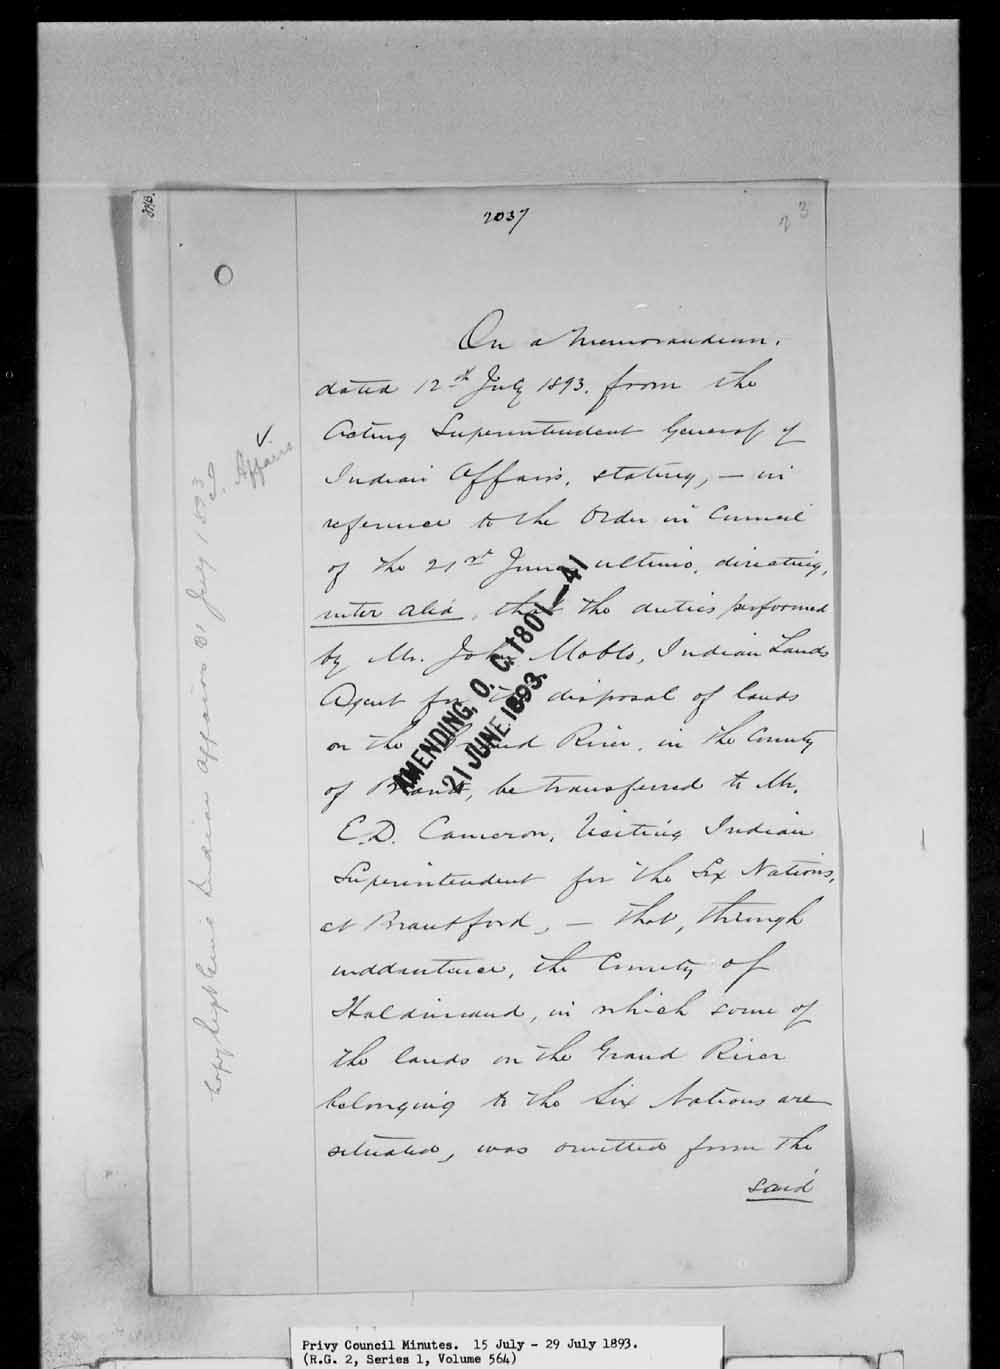 2037
23
On a Memorandum,
dated 12th July 1893, from the
Acting Superintendent General of
Indian Affairs, stating, – in
reference to the Order in Council
of the 21st June ultimo, directing,
inter alia, that the duties performed
by Mr. John Indian Lands
Agent for the disposal of lands
on the Grand River, in the County
of Brant, be transferred to Mr.
E.D. Cameron, Visiting Indian
Superintendent for the Six Nations,
at Brantford, – that, through
inadvertence, the County of
Haldimand, in which some of
the lands on the Grand River
belonging to the Six Nations are
situated, was omitted from the
said
AMENDING, O. C. 1801—41
21 JUNE 1893.
Indian Affairs 31 July 1893
Affairs
Privy Council Minutes. 15 July - 29 July 1893.
(R.G. 2, Series 1, Volume 564)